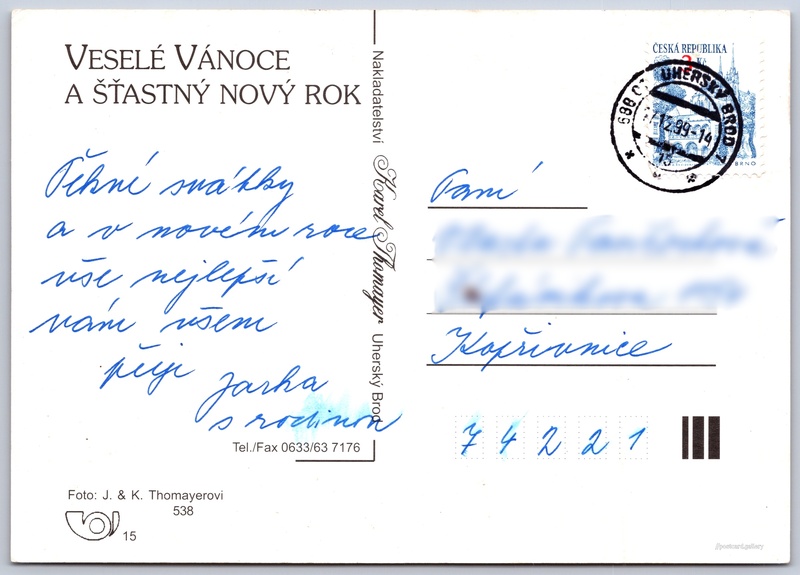 VESELÉ VÁNOCE
A ŠŤASTNÝ NOVÝ ROK
Pěkné svátky
a v novém roce
vše nejlepší
vám všem
přeje
Jarka
s rodinou
Tel./Fax 0633/63 7176
Foto: J. & K. Thomayerovi
538
15
Nakladatelství Karel Thomayer Uherský Brod
ČESKÁ REPUBLIKA
BRNO
UHERSKÝ BROD 7
12.99-14
Paní
Kopřivnice
74221